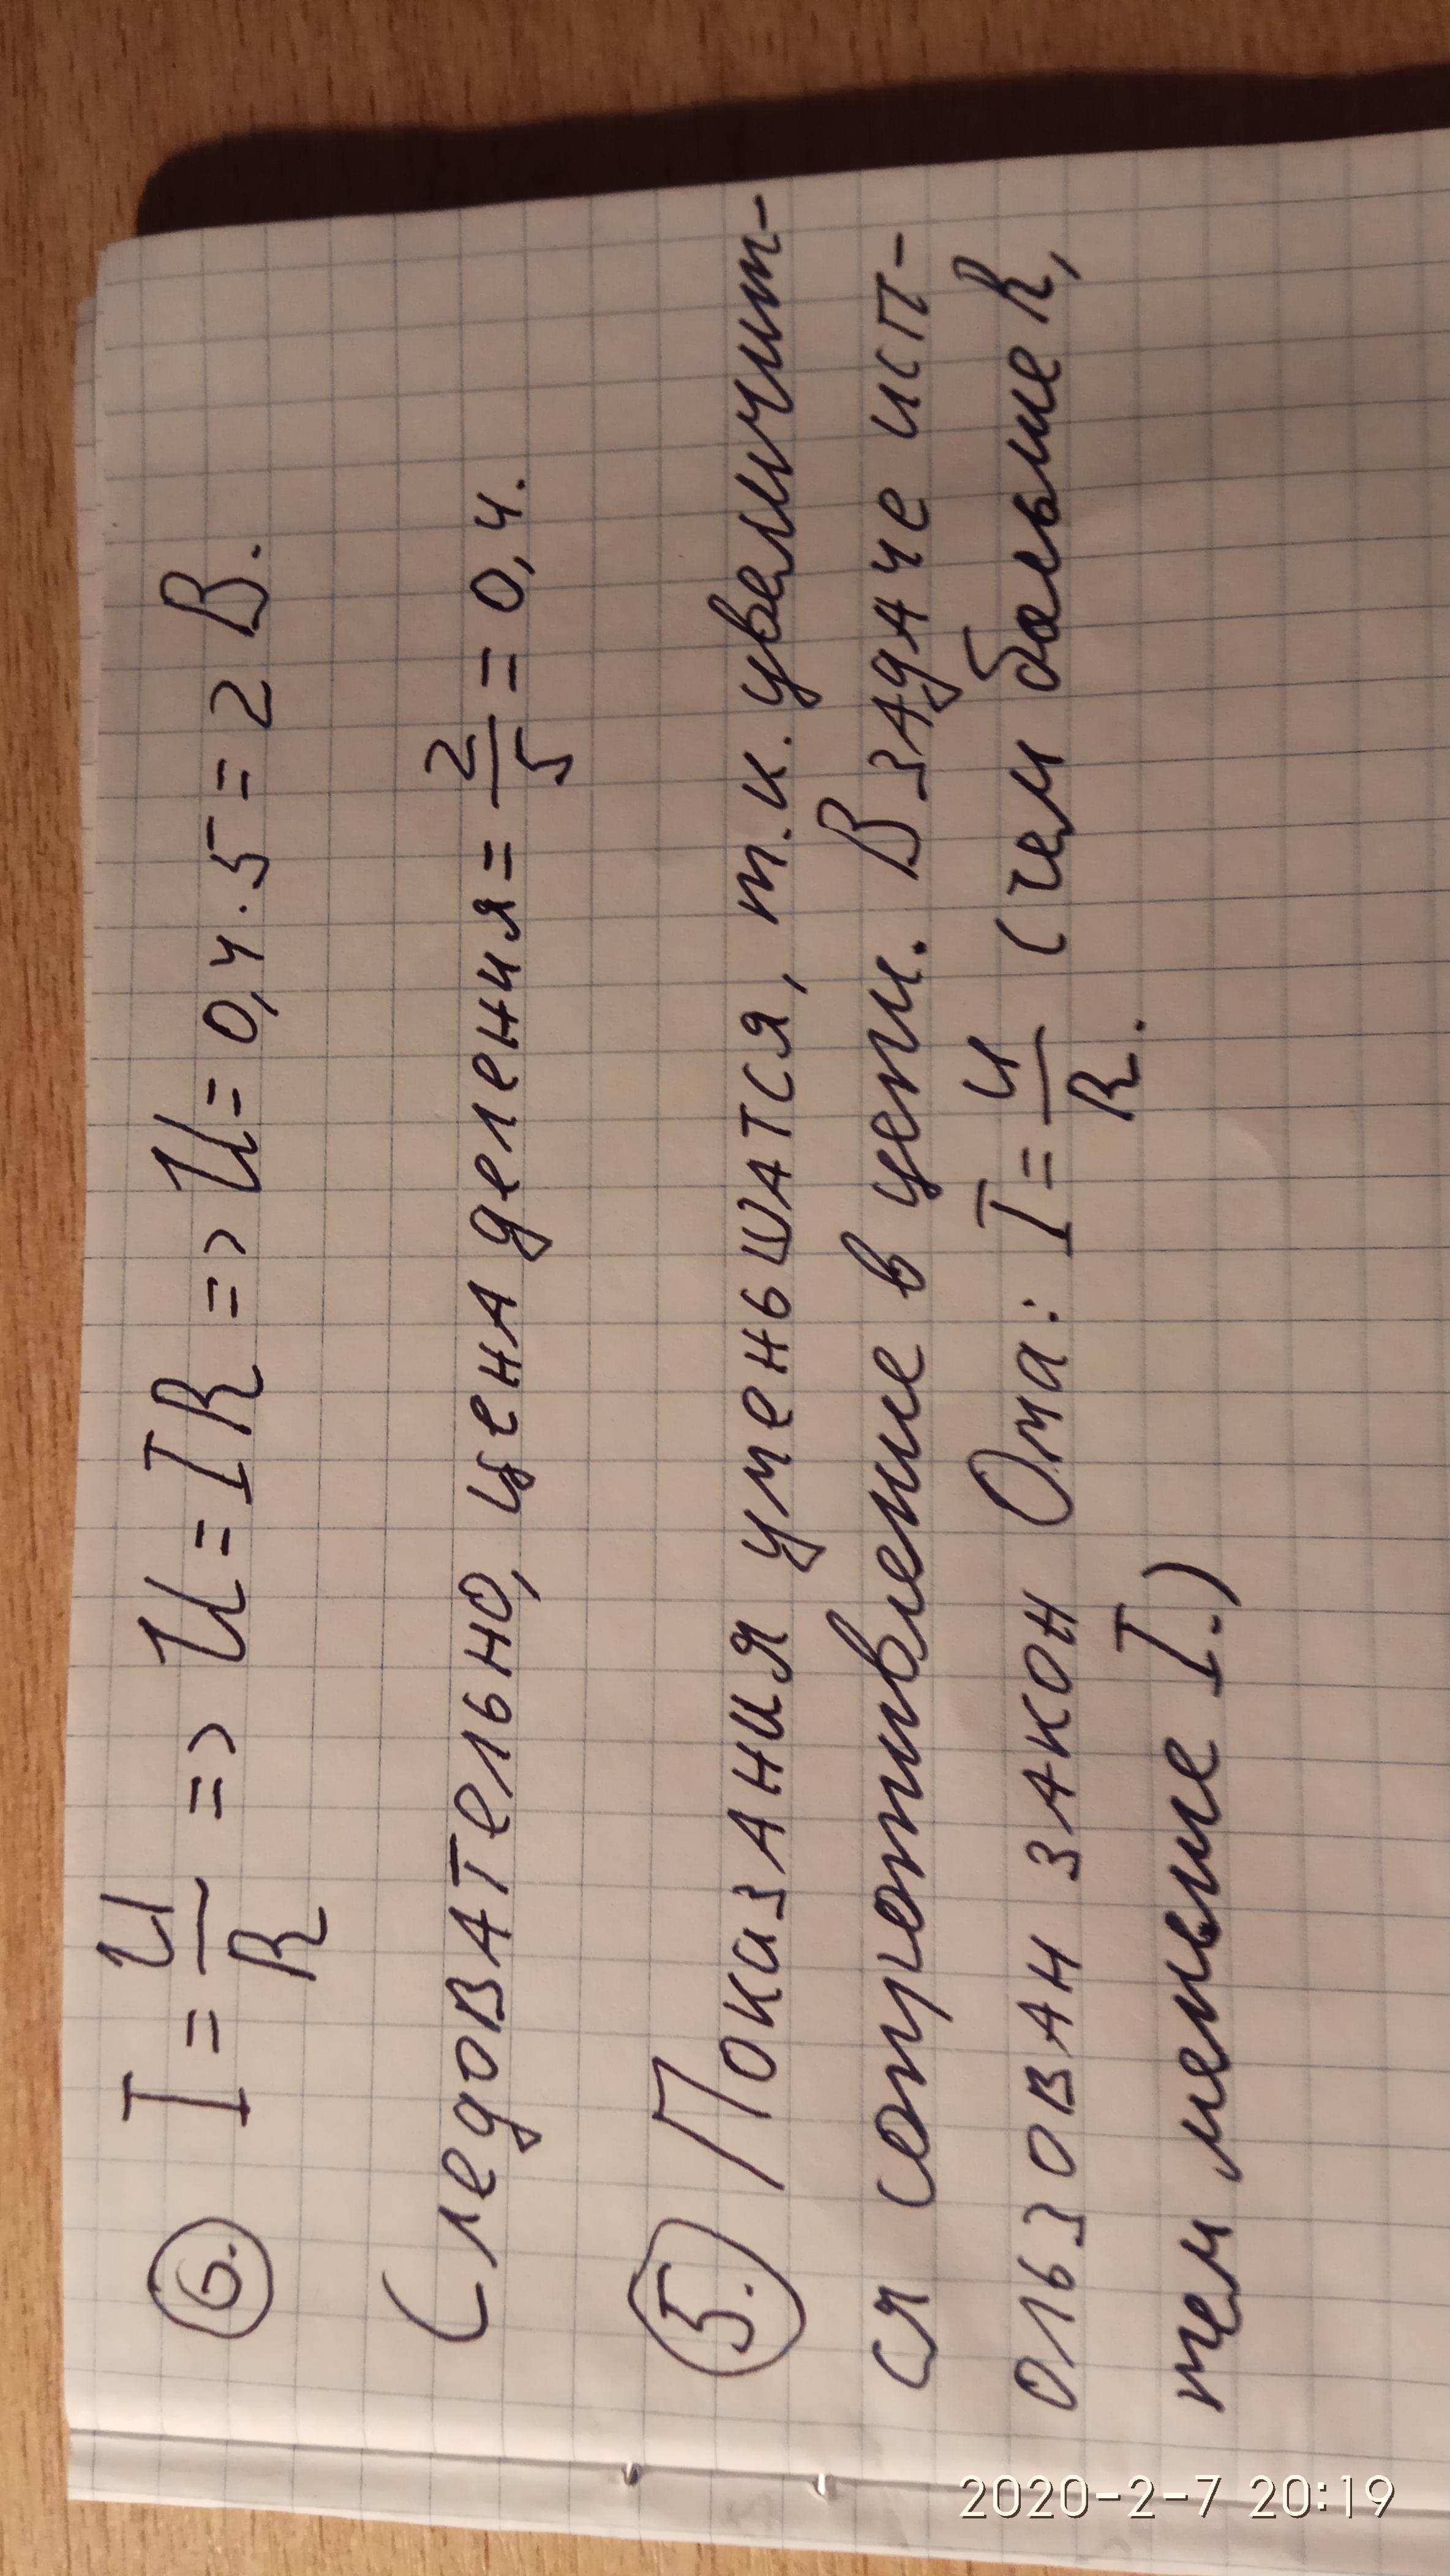 6. I = U/R => U = IR => U = 0,4 · 5 = 2 В.
Следовательно, цена деления = 2/5 = 0,4.
5. Показания уменьшатся, т.к. увеличит-
ся сопротивление в цепи. В задаче исп-
ользован закон Ома: I = U/R (чем больше R,
тем меньше I.)
2020-2-7 20:19